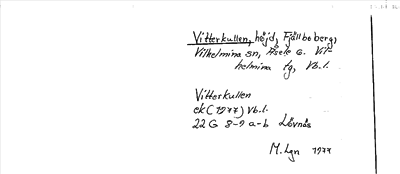 Vitterkullen, höjd, Fjällboberg,
Vilhelmina sn, Åsele o. Vil-
helmina tg, Vb.l.
Vitterkullen
ek (1977) Vb.l.
22 G 8-9 a-b Lövnäs
M. Lgn 1977